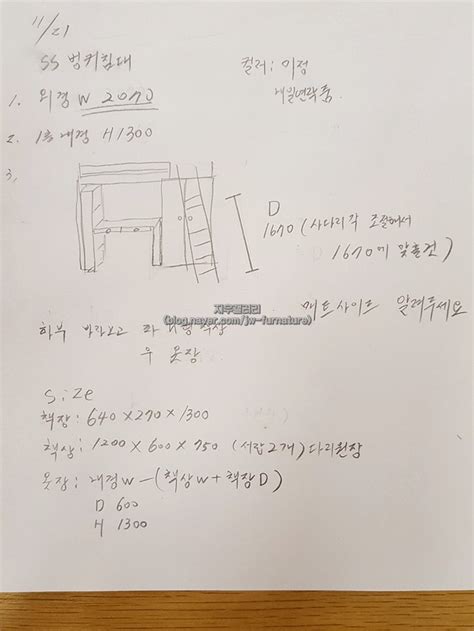 11/21
SS 벙커침대
컬러; 미정
내일연락줌
1. 외경 W 2070
2. 1층 내경 H1300
3,
D
1670 (사다리각 조절해서
1670에 맞출것)
매트사이즈 알려주세요
자우갤러리
(blog.naver.com/jw-furnature)
하부 바라보고 좌 책상
우 옷장
Size
책장; 640×270×1300
책상; 1200×600×750 (서랍2개) 다리원장
옷장; 내경W-(책상W+책장D)
D 600
H 1300